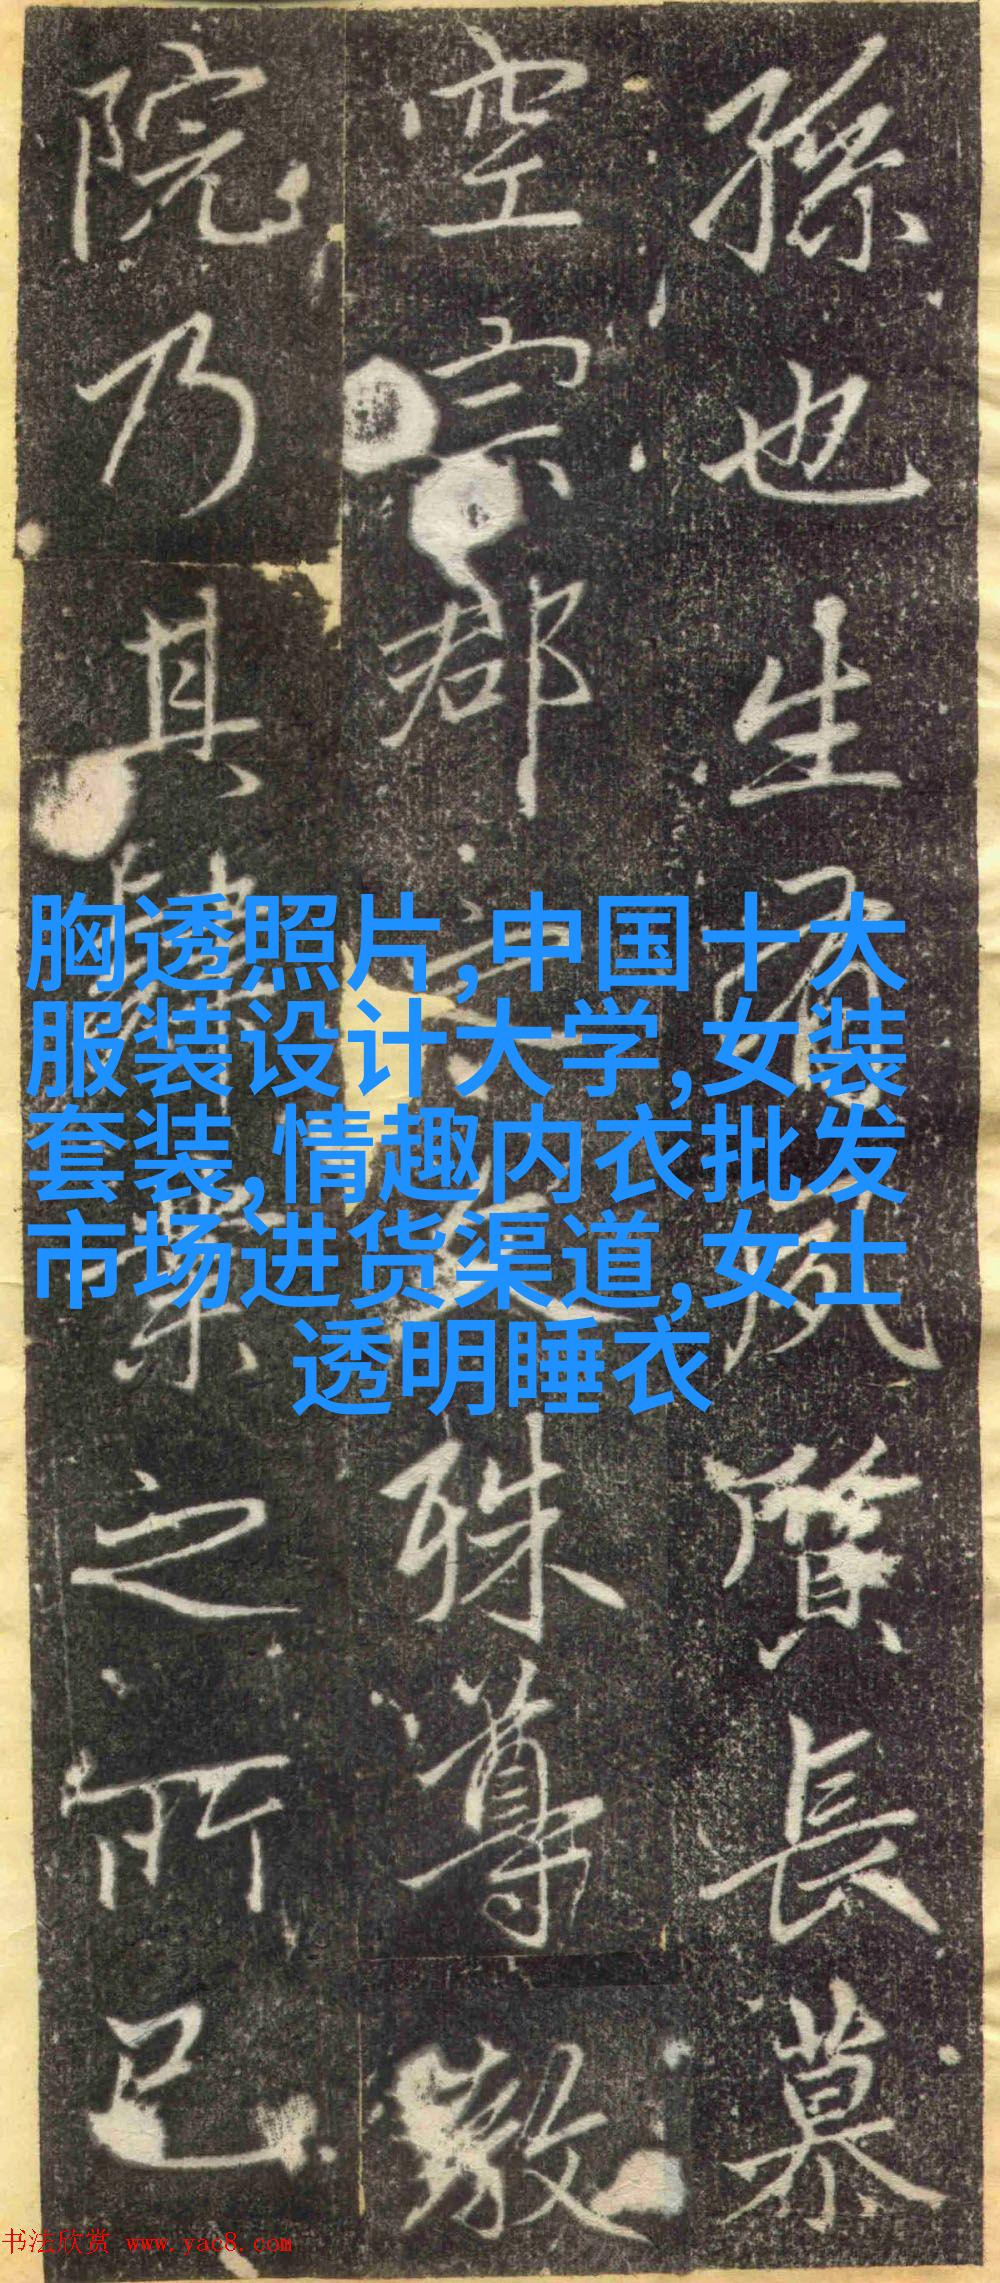 孫也生有風質長慕
空宗郡殊尊敬
院乃其肄業之所已
胸透照片,中国十大
服装设计大学,女装
套装,情趣内衣批发
市场进货渠道,女士
透明睡衣
书法欣赏 www.yac8.com